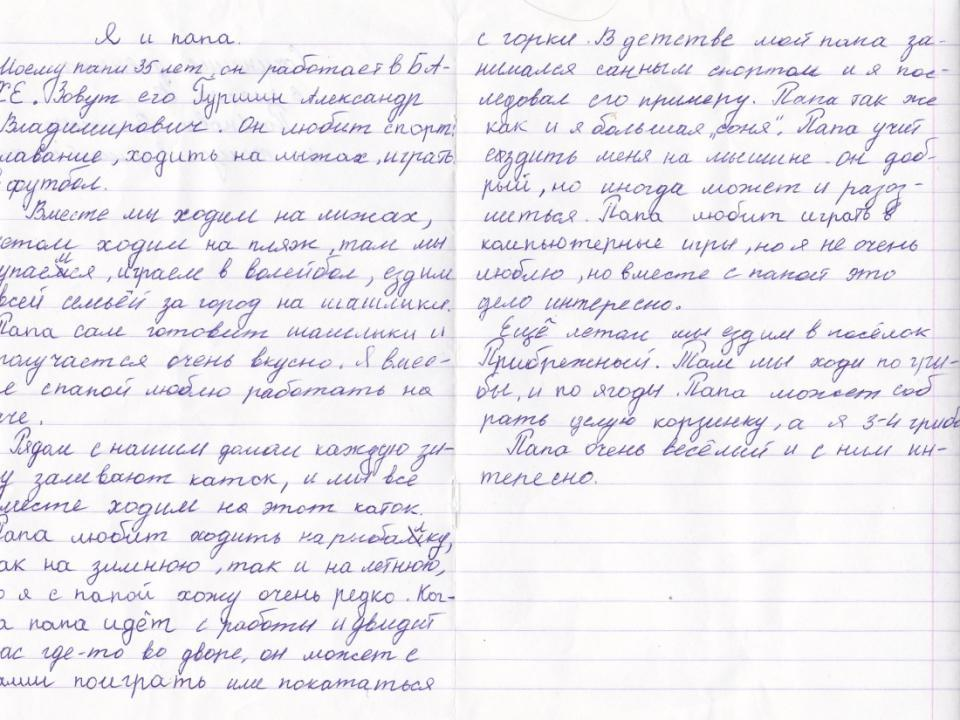 Я и папа.
Моему папи 35 лет, он работает в БА-
ХЕ. Зовут его Гуршин Александр
Владимирович. Он любит спорт:
лавание, ходить на лыжах, играть
в футбол.
Вместе мы ходим на лижах,
етом ходим на пляж, там мы
упаемся, играем в волейбол, ездим
всей семьёй за город на шашлики.
Папа сам готовит шашлыки и
получается очень вкусно. Я вмес-
е с папой люблю работать на
че.
Рядом с нашим домом каждую зи-
у заливают каток, и мы все
месте ходим на этот каток.
Папа любит ходить на рыбалку,
ак на зимнюю, так и на летнюю,
о я с папой хожу очень редко. Ког-
а папа идёт с работы и двидит
ас где-то во дворе, он может с
ами поиграть или покататься
с горки. В детстве мой папа за-
нимался санным спортом и я пос-
ледовал его примеру. Папа так же
как и я большая „соня“. Папа учит
ездить меня на мышине. Он доб-
рый, но иногда может и разоз-
литься. Папа любит играть в
компьютерные игры, но я не очень
люблю, но вместе с папой это
дело интересно.
Ещё летом мы ездим в посёлок
Прибрежный. Там мы ходи по гри-
бы, и по ягоды. Папа может соб
рать целую корзинку, а я 3-4 гриба
Папа очень весёлий и с ним ин-
тересно.